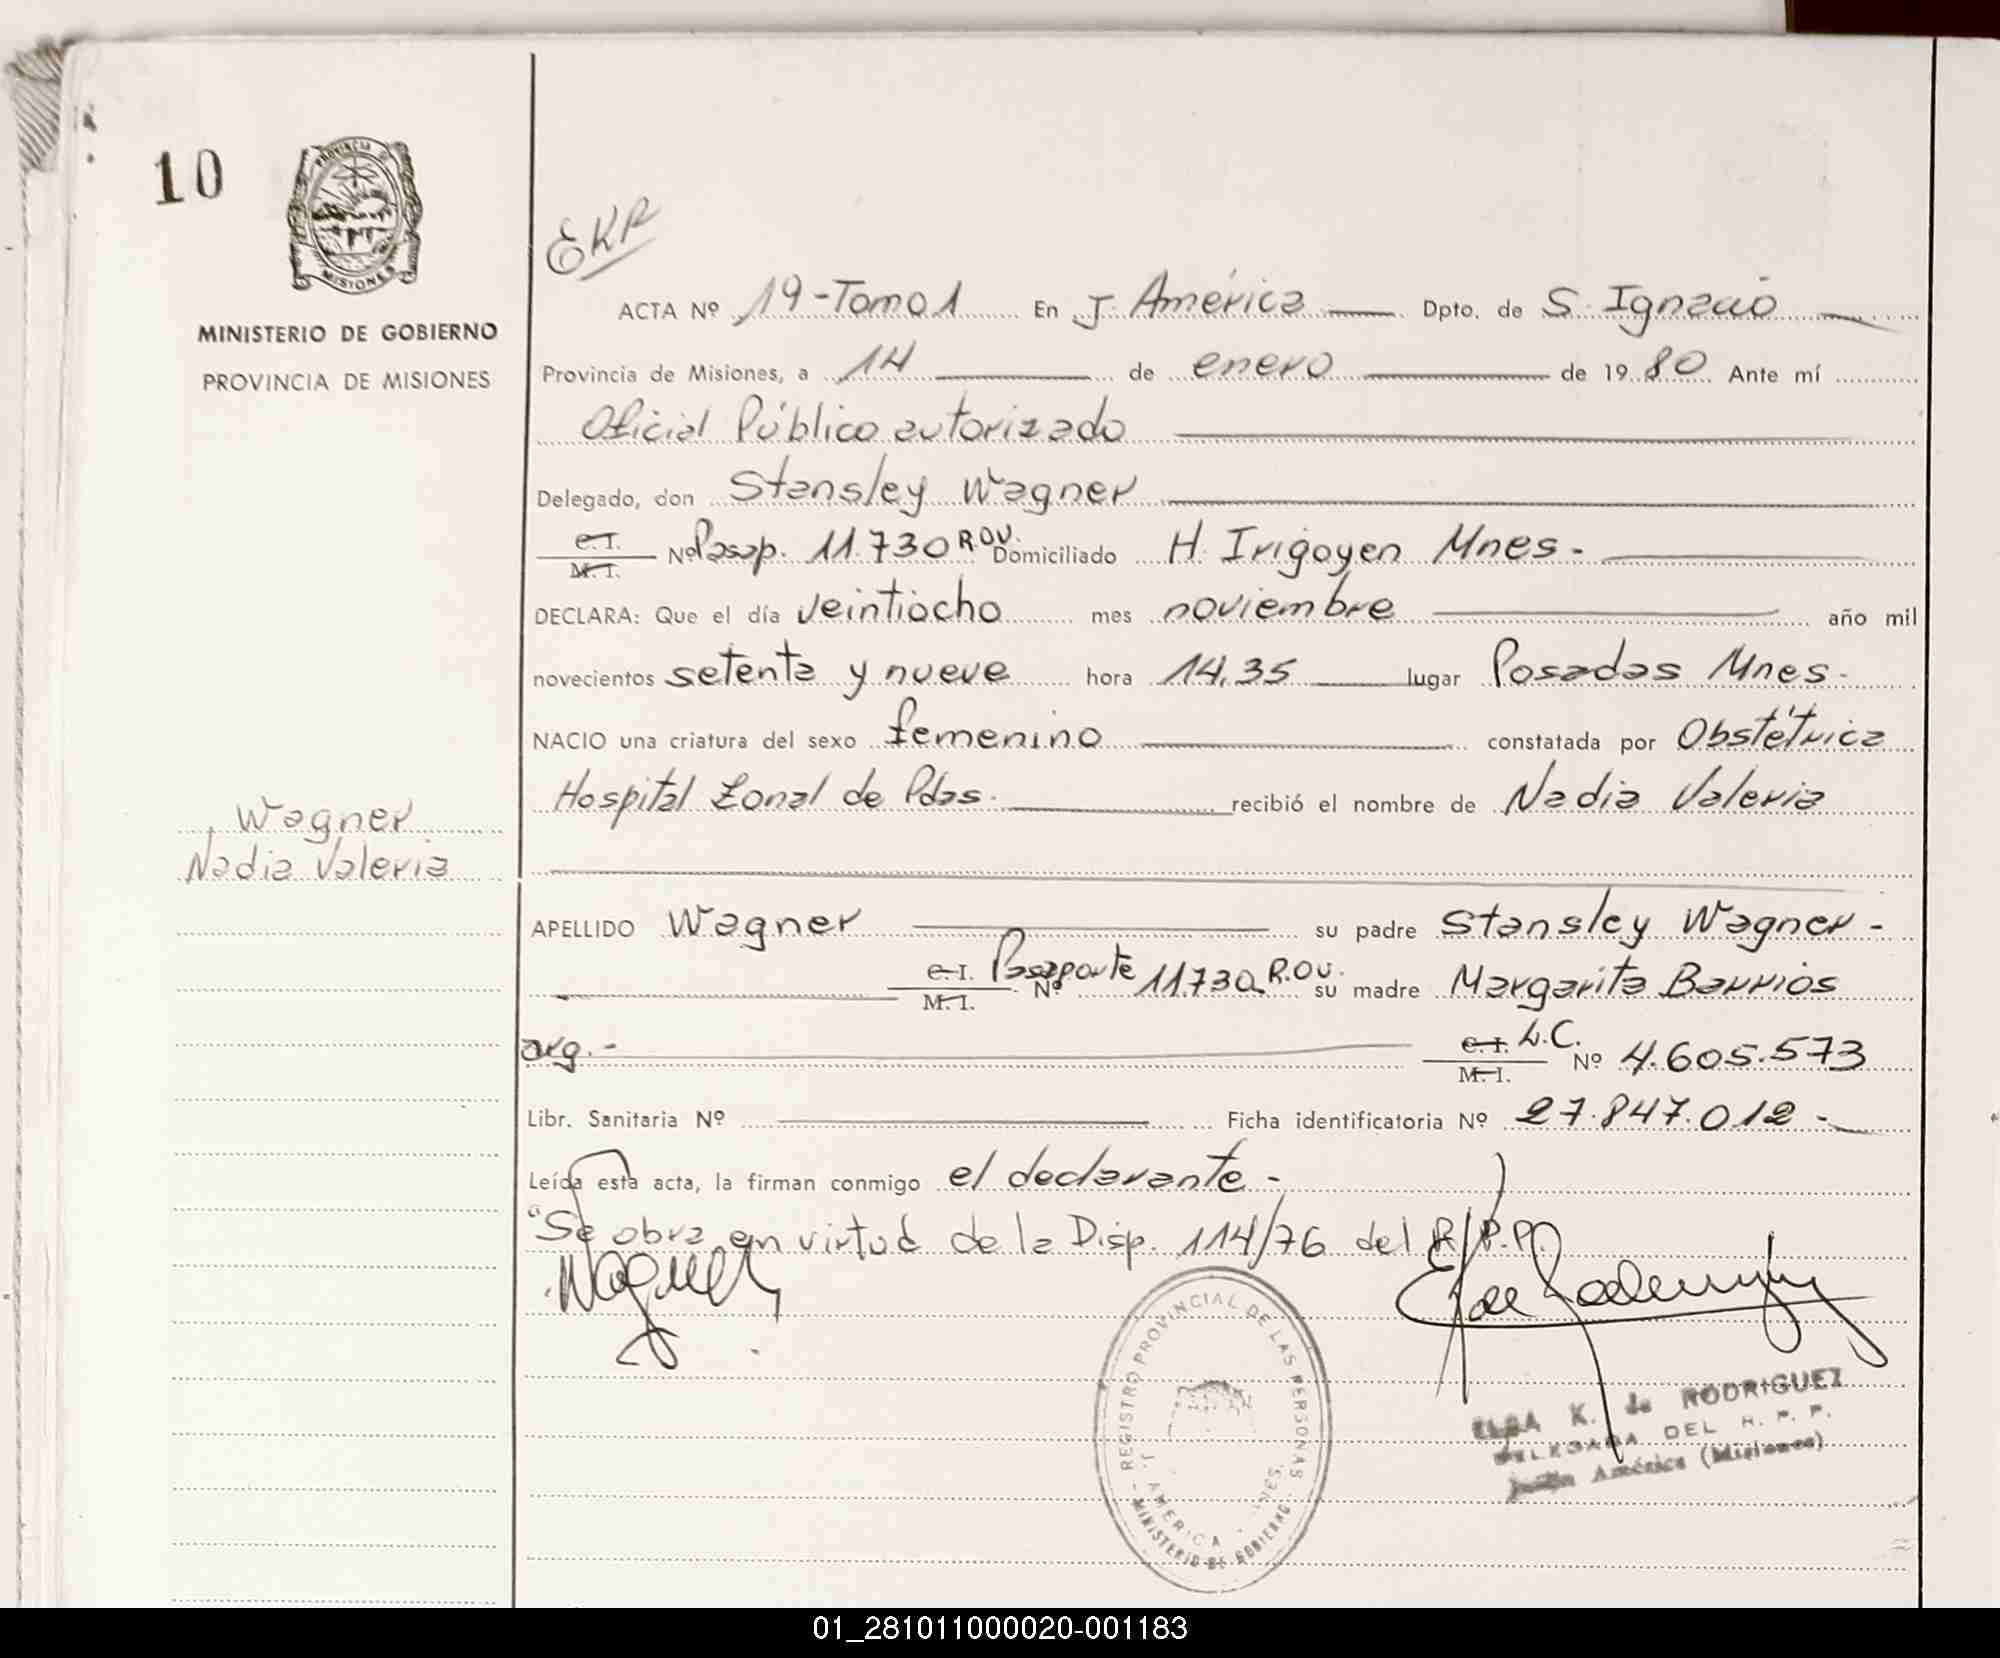 10
PROVINCIA DE
MISIONES
MINISTERIO DE GOBIERNO
PROVINCIA DE MISIONES
EKR
ACTA Nº 19-Tomo 1 En J. América Dpto. de S. Ignacio
Provincia de Misiones, a 14 de enero de 1980 Ante mí
Oficial Público autorizado
Delegado, don Stansley Wagner
C.I. / M.I. Nº Pasap. 11.730 R.OU. Domiciliado H. Irigoyen Mnes.
DECLARA: Que el día veintiocho mes noviembre año mil
novecientos setenta y nueve hora 14,35 lugar Posadas Mnes.
NACIO una criatura del sexo femenino constatada por Obstétrica
Hospital Zonal de Pdas. recibió el nombre de Nadia Valeria
Wagner
Nadia Valeria
APELLIDO Wagner su padre Stansley Wagner -
C.I. / M.I. Nº Pasaporte 11.730 R.OU. su madre Margarita Barrios
arg.- C.I. / M.I. L.C. Nº 4.605.573
Libr. Sanitaria Nº Ficha identificatoria Nº 27.847.012.-
Leída esta acta, la firman conmigo el declarante -
"Se obra en virtud de la Disp. 114/76 del R.P.P.
Wagner
REGISTRO PROVINCIAL DE LAS PERSONAS
J. AMERICA - MNES.
- MINISTERIO DE GOBIERNO -
ELBA K. de RODRIGUEZ
DELEGADA DEL R. P. P.
Jardín América (Misiones)
01_281011000020-001183